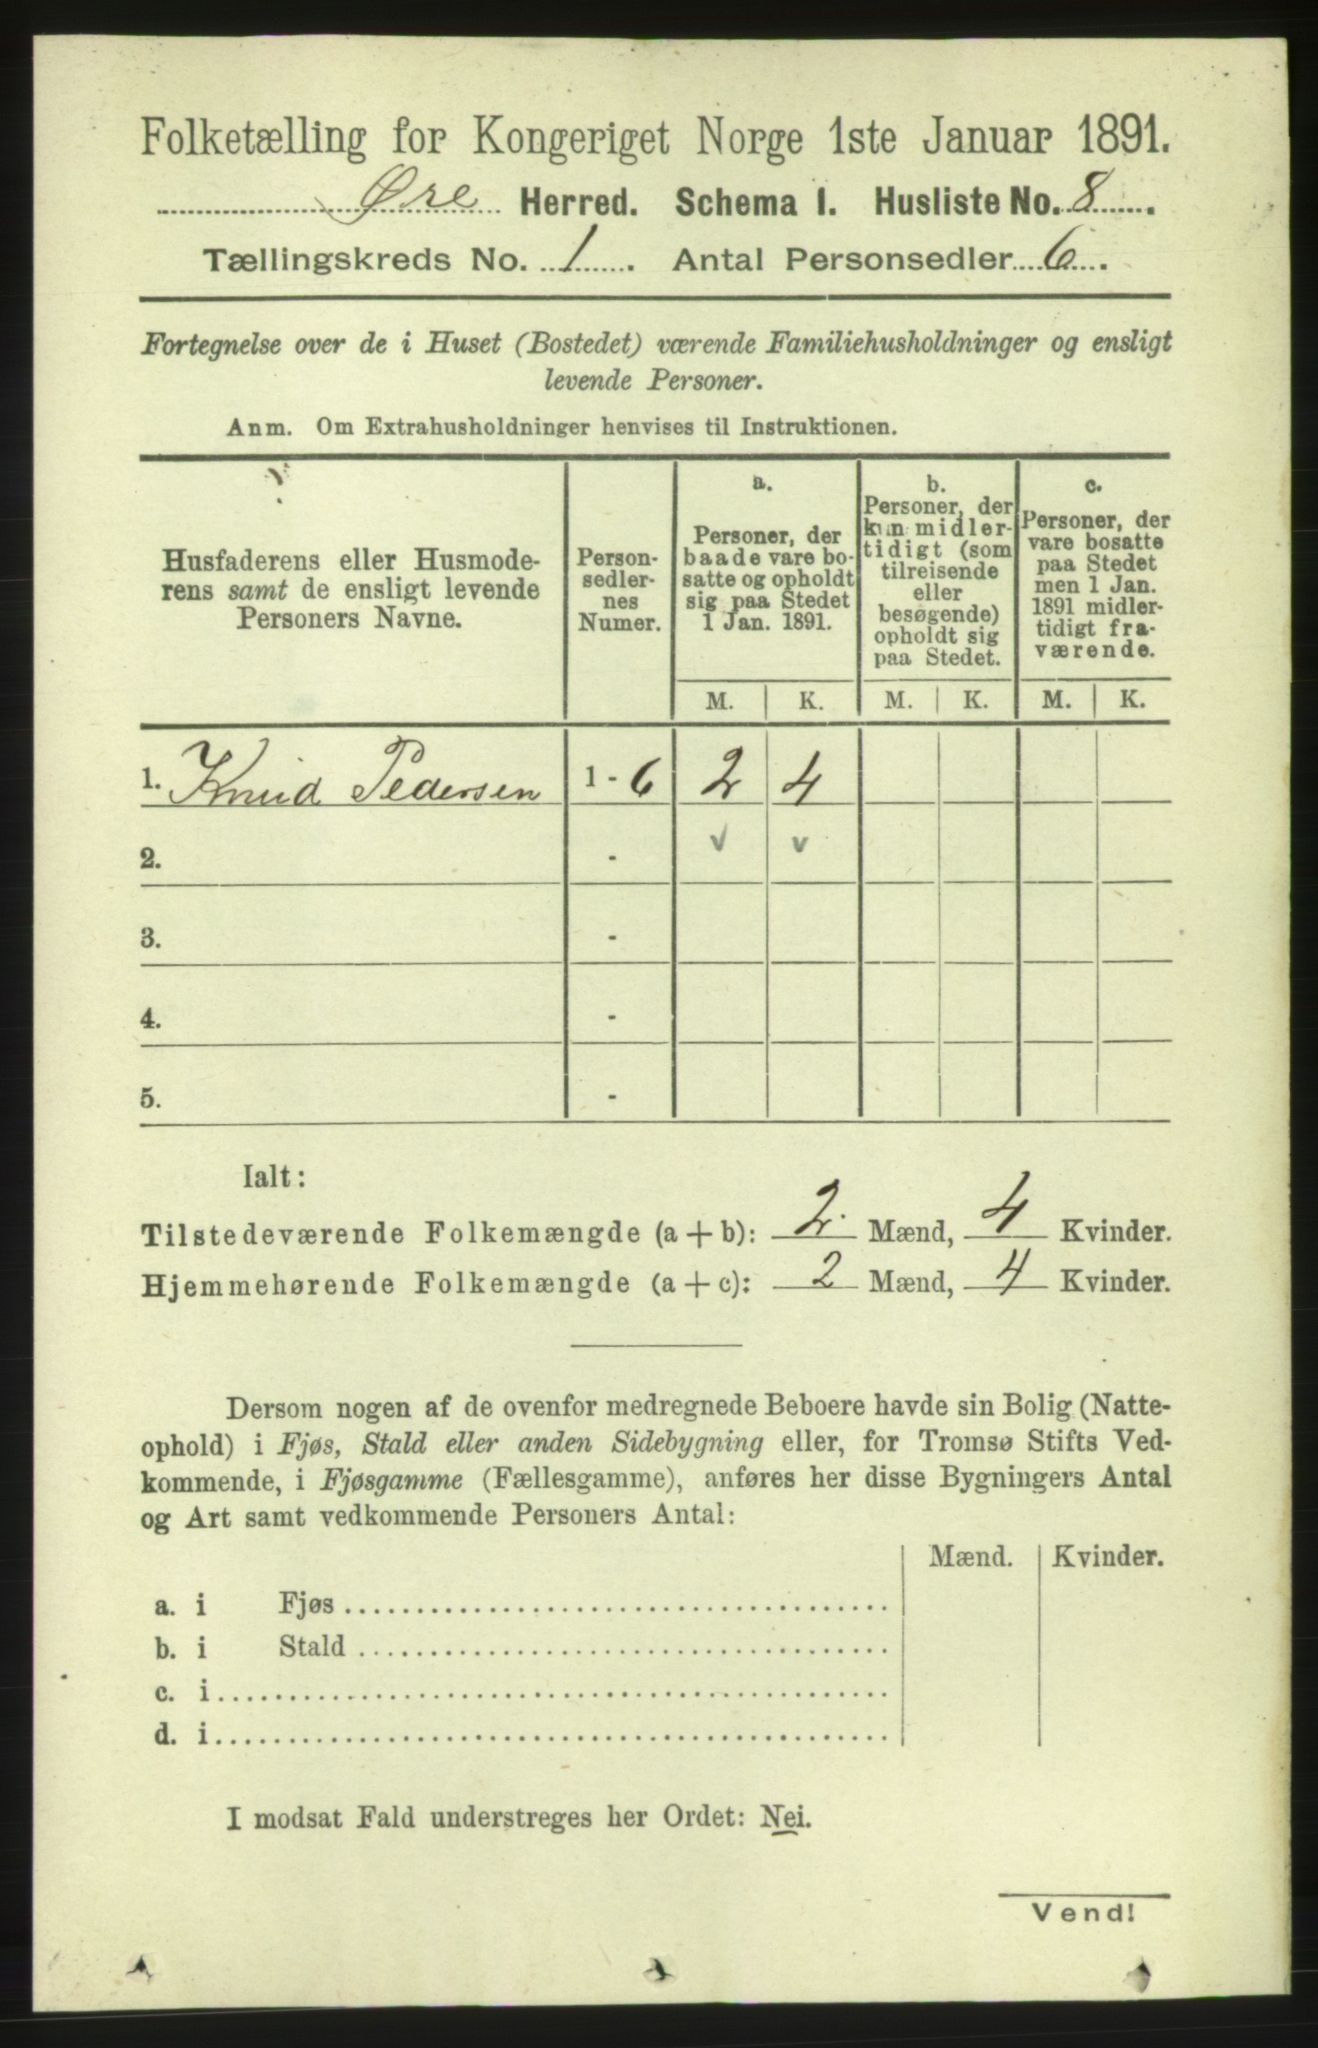 Folketælling for Kongeriget Norge 1ste Januar 1891.
Øre Herred. Schema I. Husliste No. 8.
Tællingskreds No. 1. Antal Personsedler 6.
Fortegnelse over de i Huset (Bostedet) værende Familiehusholdninger og ensligt
levende Personer.
Anm. Om Extrahusholdninger henvises til Instruktionen.
Husfaderens eller Husmode-
rens samt de ensligt levende
Personers Navne.
Person-
sedler-
nes
Numer.
a.
Personer, der
baade vare bo-
satte og opholdt
sig paa Stedet
1 Jan. 1891.
b.
Personer, der
kun midler-
tidigt (som
tilreisende
eller
besøgende)
opholdt sig
paa Stedet.
c.
Personer, der
vare bosatte
paa Stedet
men 1 Jan.
1891 midler-
tidigt fra-
værende.
M. K. M. K. M. K.
1. Knud Pedersen 1 - 6 2 4
2. - ✓ ✓
3. -
4. -
5. -
Ialt:
Tilstedeværende Folkemængde (a + b): 2 Mænd, 4 Kvinder.
Hjemmehørende Folkemængde (a + c): 2 Mænd, 4 Kvinder.
Dersom nogen af de ovenfor medregnede Beboere havde sin Bolig (Natte-
ophold) i Fjøs, Stald eller anden Sidebygning eller, for Tromsø Stifts Ved-
kommende, i Fjøsgamme (Fællesgamme), anføres her disse Bygningers Antal
og Art samt vedkommende Personers Antal:
Mænd. Kvinder.
a. i Fjøs
b. i Stald
c. i
d. i
I modsat Fald understreges her Ordet: Nei.
Vend!